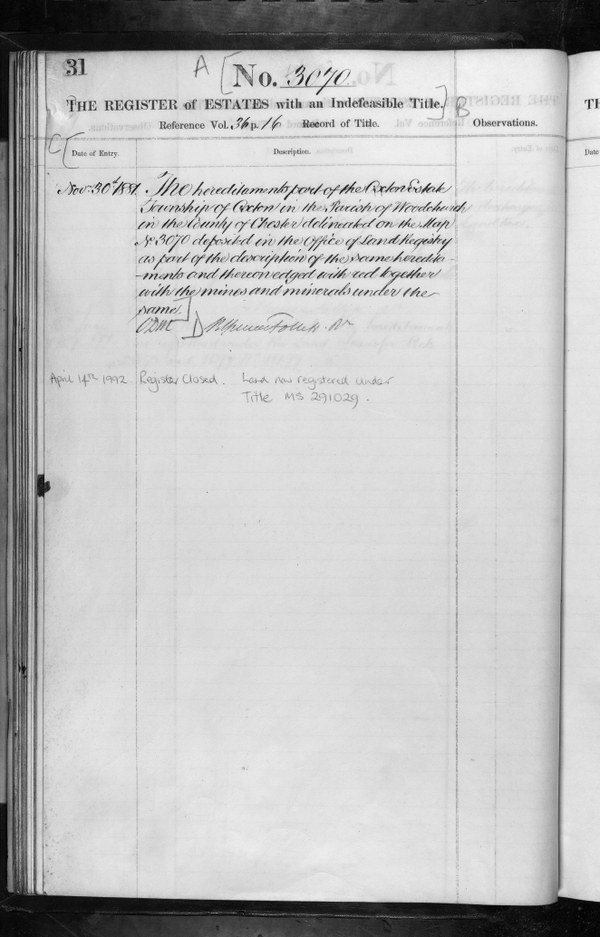 31
A [ No. 3070
THE REGISTER of ESTATES with an Indefeasible Title. ] B
Reference Vol. 36 p. 16 Record of Title.
Observations.
C [ Date of Entry.
Description.
Nov: 30th 1881. The hereditaments part of the Oxton Estate
Township of Oxton in the Parish of Woodchurch
in the County of Chester delineated on the Map
No 3070 deposited in the Office of Land Registry
as part of the description of the same heredita-
-ments and thereon edged with red together
with the mines and minerals under the
same. ]
D
April 14th 1992 Register Closed. Land now registered under
Title MS 291029.
TH
Date